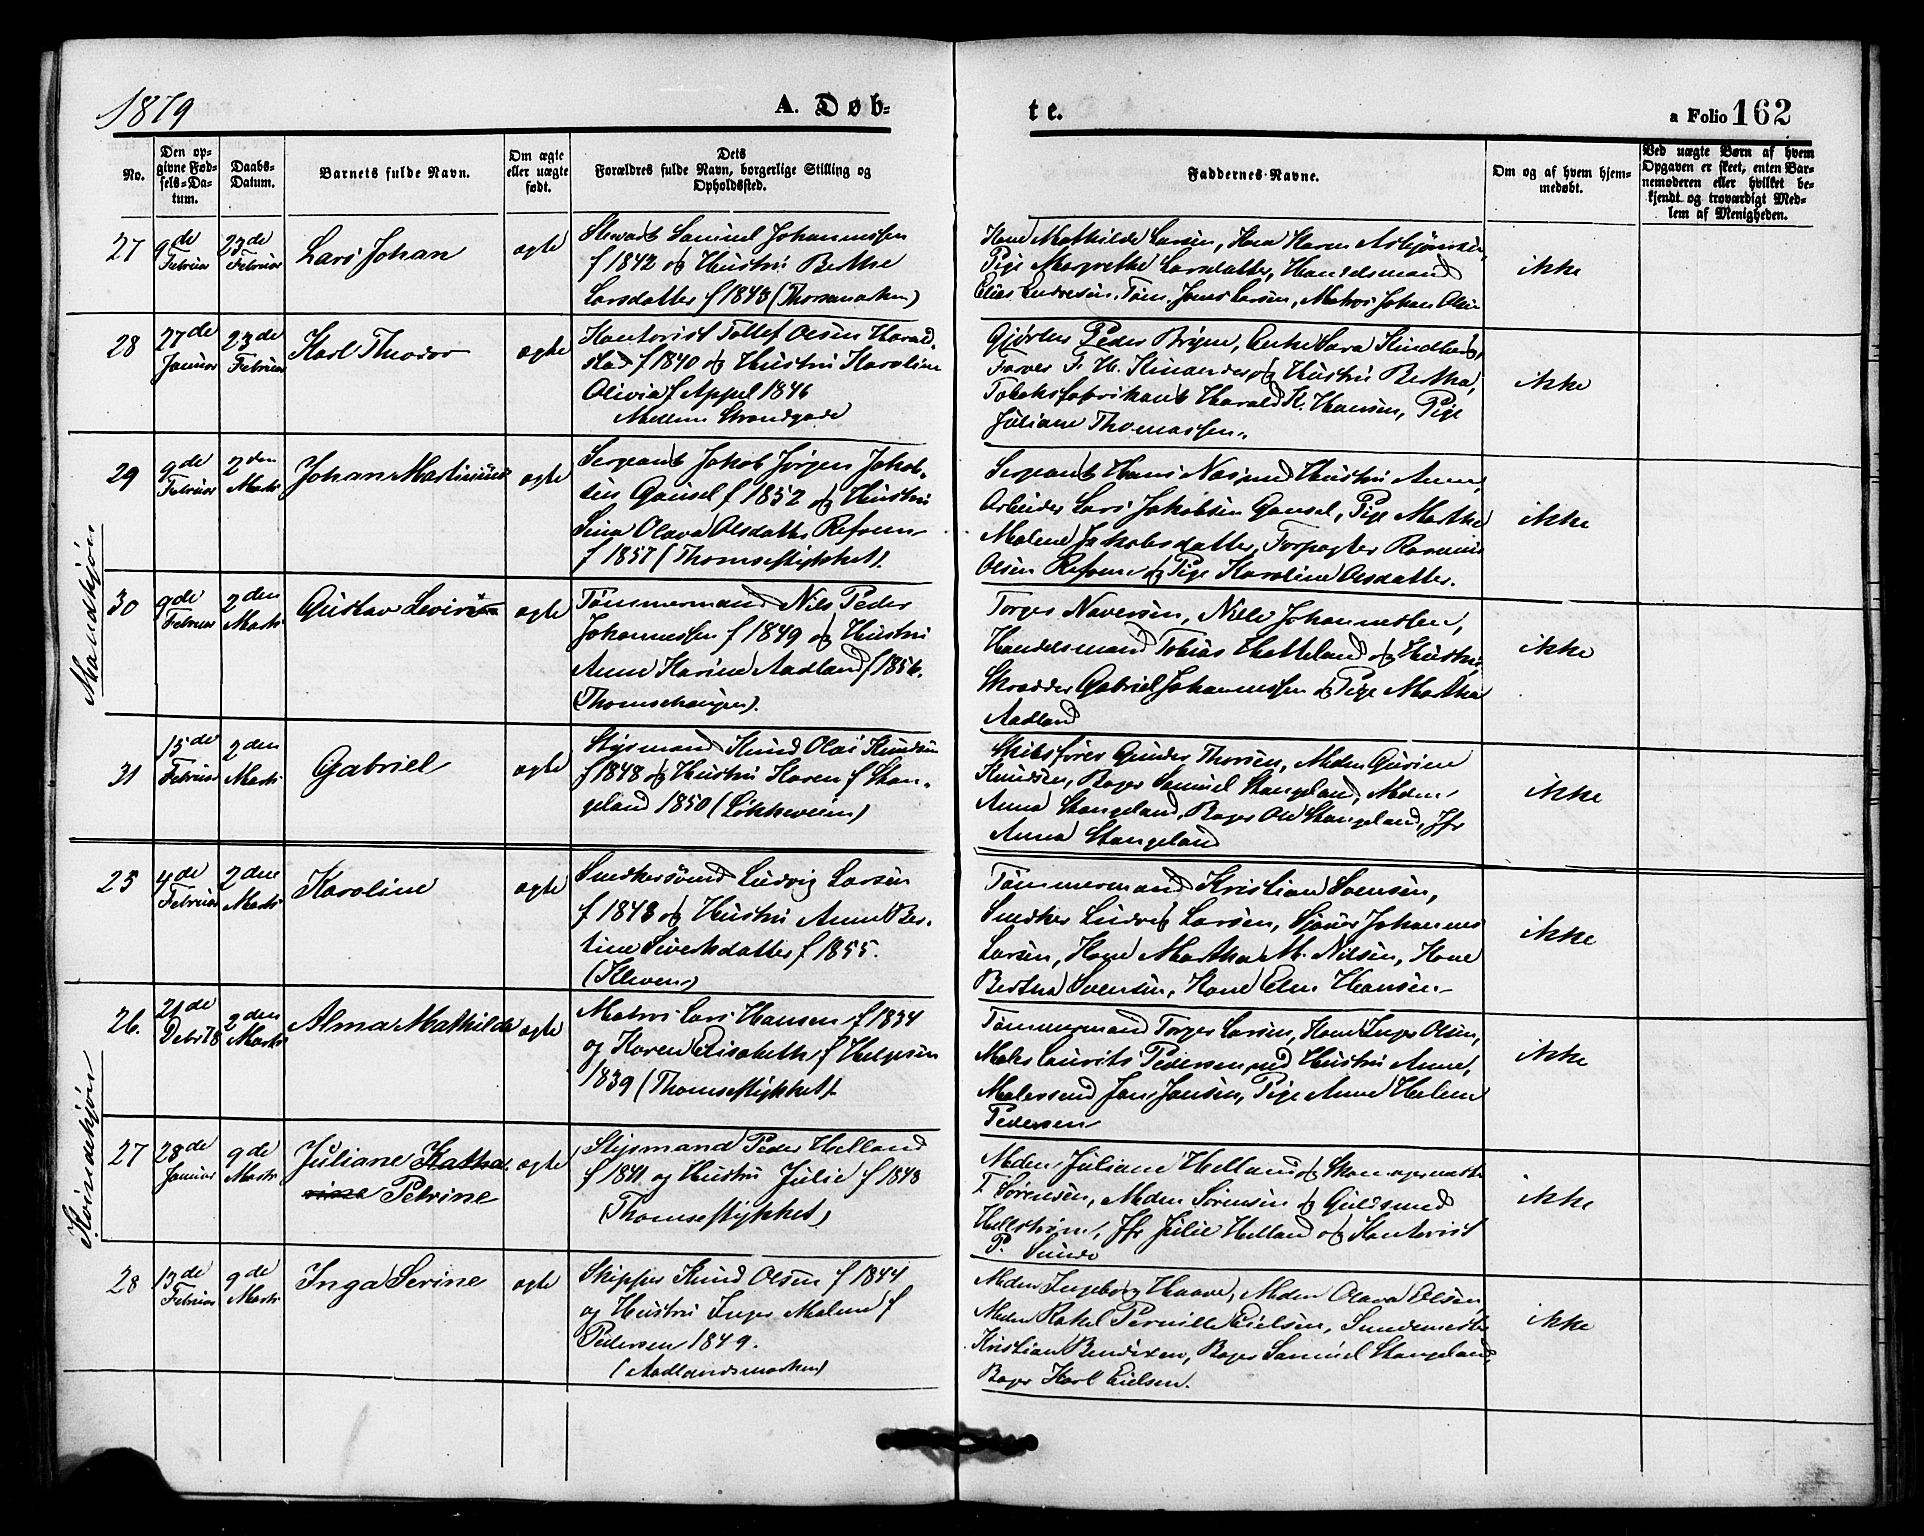 1879
A. Døb-
te.
a Folio 162
No.
Den op-
givne Fød-
sels-Da-
tum.
Daabs-
Datum.
Barnets fulde Navn.
Om ægte
eller uægte
født.
Dets
Forældres fulde Navn, borgerlige Stilling og
Opholdssted.
Faddernes Navne.
Om og af hvem hjem-
medøbt.
Ved uægte Børn af hvem
Opgaven er skeet, enten Bar-
nemoderen eller hvilket be-
kjendt og troværdigt Med-
lem af Menigheden.
Mandkjøn
27
9de
Februar
23de
Februar
Lars Johan
ægte
Stewart Samuel Johannessen
f 1842 og Hustru Berthe
Larsdatter f 1843 (Thorsmarken)
Kone Mathilde Larsen, Kone Karen Asbjørnsen
Pige Margrethe Larsdatter, Handelsmand
Elias Endresen, Tøm. Jonas Larsen, Matros Johan Olsen
ikke
28
27de
Januar
23de
Februar
Karl Theodor
ægte
Kontorist Tollef Olsen Harald-
stad f 1840 og Hustru Karoline
Olivia f Appel 1846
Mellem Strandgade
Gjørtler Peder Bryne, Enke Sara Kindberg,
Farver F. H. Kinander og Hustru Bertha,
Tobaksfabrikant Harald K. Hansen, Pige
Juliane Thomassen.
ikke
29
9de
Februar
2den
Marts
Johan Martinius
ægte
Sergeant Jakob Jørgen Jakob-
sen Gausel f 1852 og Hustru
Sina Olava Olsdatter Refsnes
f 1857 (Thomsestykket).
Sergeant Hans Næs med Hustru Anne,
Arbeider Lars Jakobsen Gausel, Pige Marthe
Malene Jakobsdatter, Forpagter Rasmus
Olsen Refsnes og Pige Karoline Olsdatter.
ikke
30
9de
Februar
2den
Marts
Gustav Levin
ægte
Tømmermand Nils Peder
Johannessen f 1849 og Hustru
Anne Karine Aadland f 1856.
(Thomsehaugen).
Torger Naversen, Niels Johannessen,
Handelsmand Tobias Hatteland og Hustru,
Skrædder Gabriel Johannessen og Pige Martha
Aadland
ikke
31
15de
Februar
2den
Marts
Gabriel
ægte
Styrmand Knud Olai Knudsen
f 1848 og Hustru Karen f Stan-
geland 1850 (Løkkeveien)
Skibsfører Gunder Thorsen, Mdm Gurine
Knudsen, Bager Samuel Stangeland, Mdm
Anna Stangeland, Bager Ole Stangeland, Jfr
Anna Stangeland
ikke
Kvindekjøn
25
4de
Februar
2den
Marts
Karoline
ægte
Snedkersvend Ludvig Larsen
f 1843 og Hustru Anne Ber-
tine Sivertsdatter f 1855.
(Kleven)
Tømmermand Kristian Svensen,
Snedker Ludvig Larsen, Sjouer Johannes
Larsen, Kone Martha M. Nilsen, Kone
Bertha Svensen, Kone Elen Hansen
ikke
26.
21de
Debr 78
2den
Marts
Alma Mathilde
ægte
Matros Lars Hansen f 1834
og Karen Elisabeth f Helgesen
1839 (Thomsestykket).
Tømmermand Torger Larsen, Kone Inger Olsen,
Maler Laurits Pedersen med Hustru Anne,
Malersvend Jens Jansen, Pige Anne Helene
Pedersen
ikke
27
28de
Januar
9de
Marts
Juliane Katha-
rine Petrine
ægte
Styrmand Peder Helland
f 1841 og Hustru Julie f 1843
(Thomsestykket)
Mdm Juliane Helland og Skomagermester
T Sørensen, Mdm Sørensen og Guldsmed
Hellstrøm, Jfr Julie Helland og Kontorist
P. Sunde
ikke
28
13de
Februar
9de
Marts
Inga Serine
ægte
Skipper Knud Olsen f 1844
og Hustru Inger Malene f
Pedersen 1849.
(Aadlandsmarken)
Mdm Ingeborg Haave, Mdm Olava Olsen,
Mdm Rakel Pernille Eielsen,
Kristian Bendixen, Bager Samuel Stangeland,
Bager Karl Eielsen.
ikke